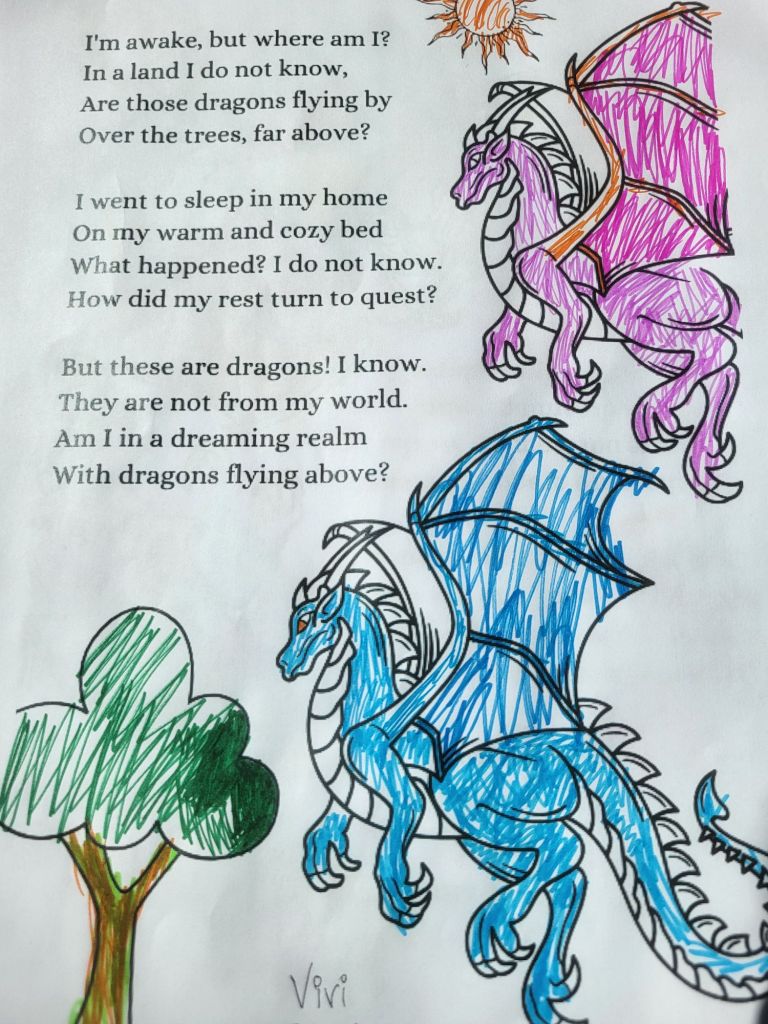 I'm awake, but where am I?
In a land I do not know,
Are those dragons flying by
Over the trees, far above?
I went to sleep in my home
On my warm and cozy bed
What happened? I do not know.
How did my rest turn to quest?
But these are dragons! I know.
They are not from my world.
Am I in a dreaming realm
With dragons flying above?
Vivi